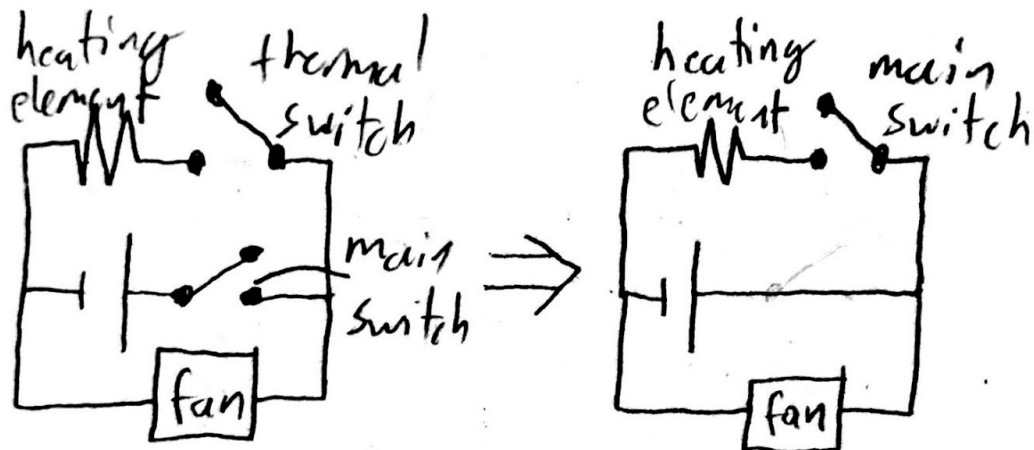 heating
element
thermal
switch
main
switch
fan
heating
element
main
switch
fan